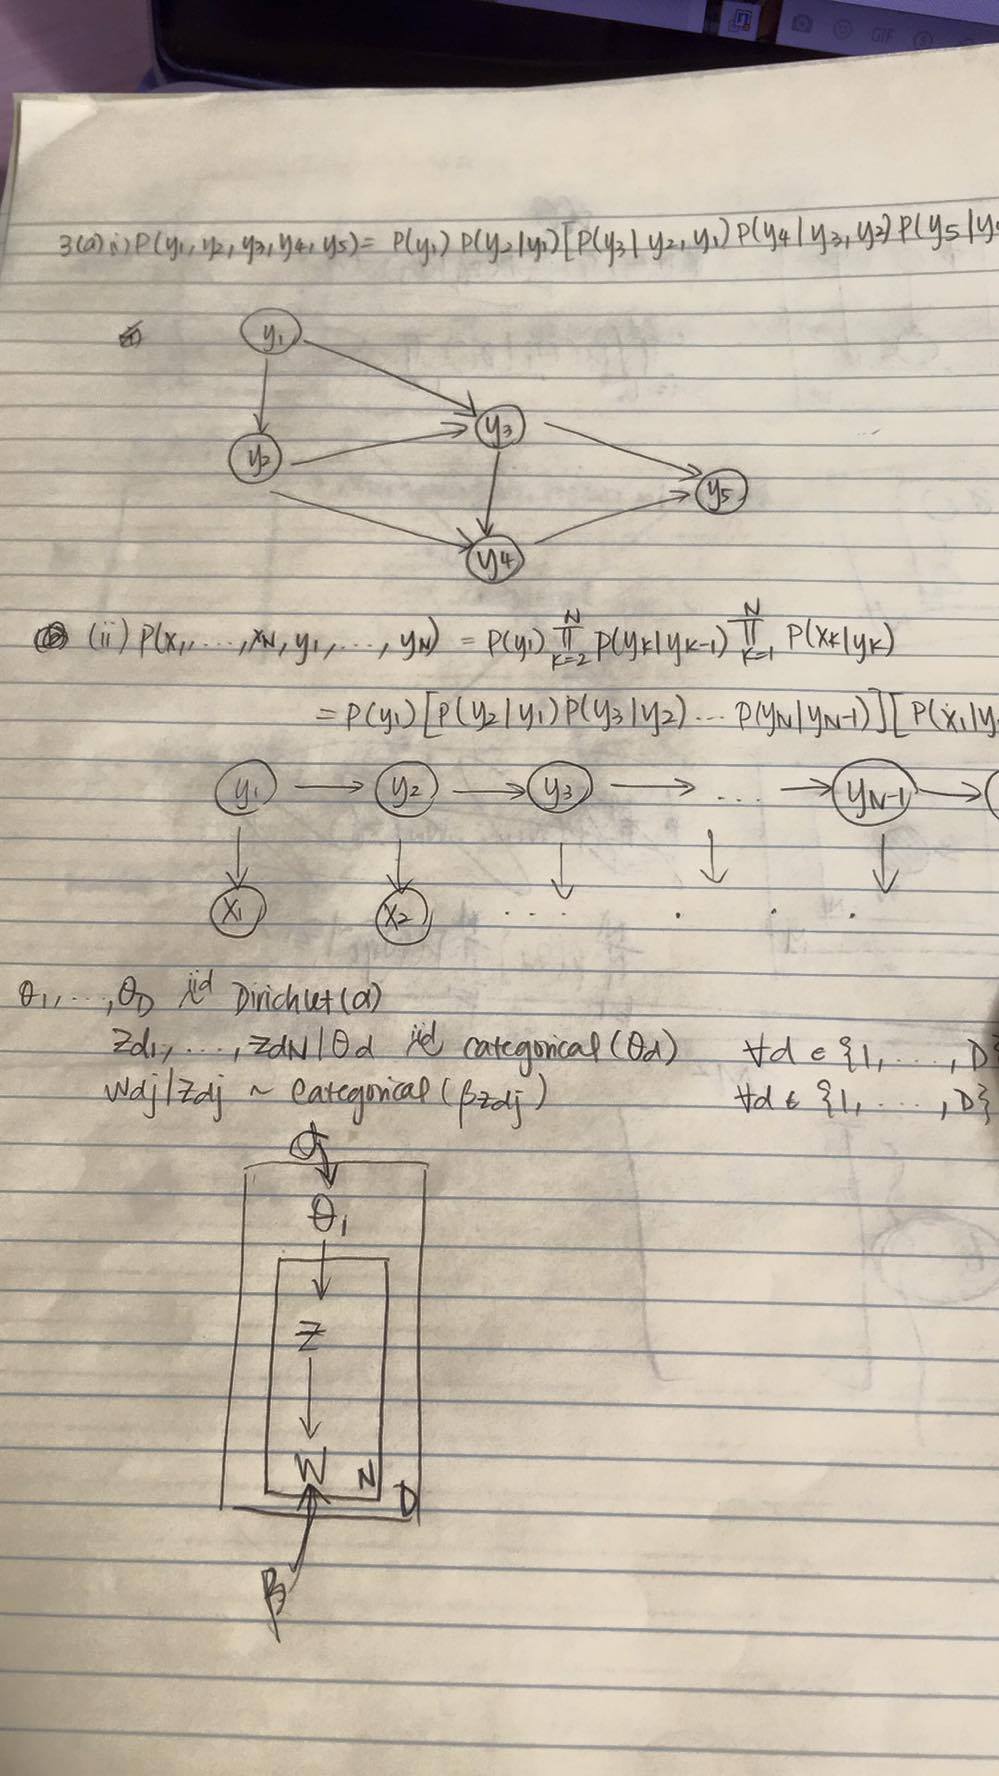 3(a) i) P(y₁, y₂, y₃, y₄, y₅) = P(y₁) P(y₂|y₁) [P(y₃|y₂, y₁) P(y₄|y₃, y₂) P(y₅|y
y₁
y₃
y₂
y₅
y₄
(ii) P(x₁, ..., x_N, y₁, ..., y_N) = P(y₁) ∏_{k=2}^{N} P(y_k|y_{k-1}) ∏_{k=1}^{N} P(x_k|y_k)
= P(y₁) [P(y₂|y₁) P(y₃|y₂) ... P(y_N|y_{N-1})] [P(x₁|y
y₁ → y₂ → y₃ → ... → y_{N-1} →
x₁ x₂ .... . . .
θ₁, ..., θ_D iid Dirichlet(α)
z_{d1}, ..., z_{dN}|θ_d iid categorical(θ_d) ∀d ∈ {1, ..., D}
w_{dj}|z_{dj} ~ Categorical(β_{z_{dj}}) ∀d ∈ {1, ..., D}
α
θ₁
z
W N
D
β